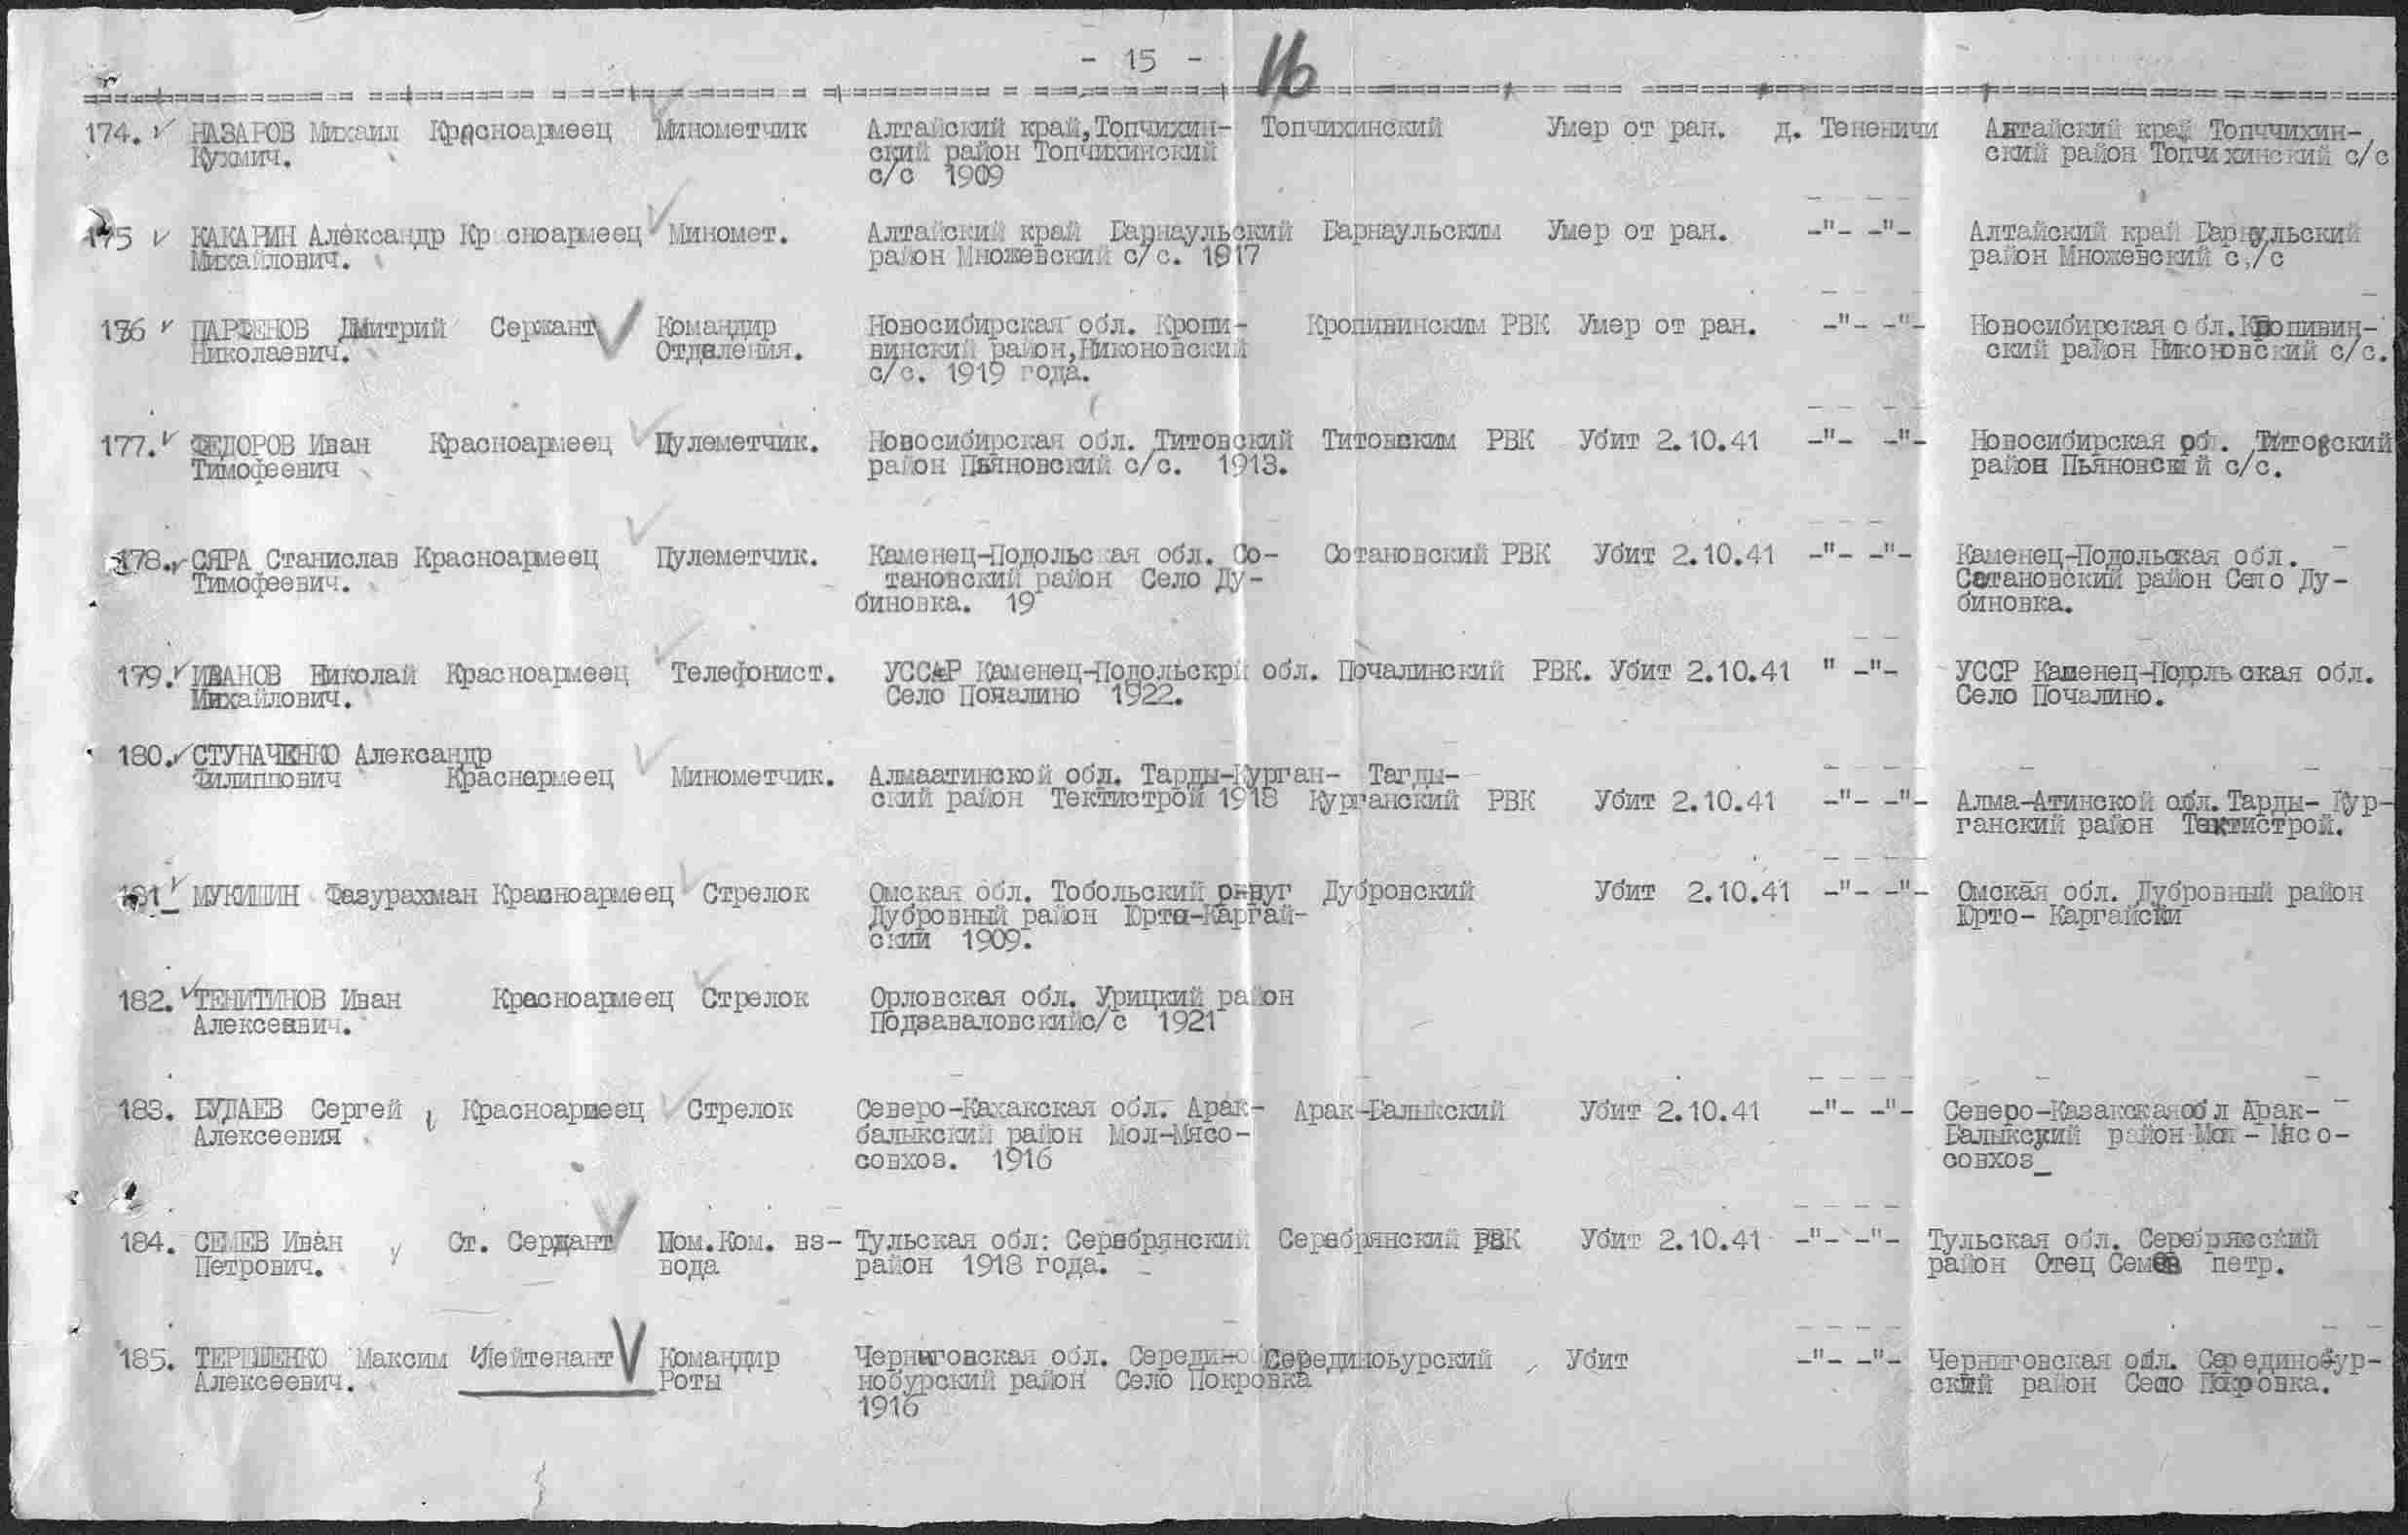 - 15 -
16
174. НАЗАРОВ Михаил Красноармеец Минометчик Алтайский край, Топчихин- Топчихинский Умер от ран. д. Тененичи Алтайский край Топччихин-
Кухмич. ский район Топчихинский ский район Топчихинский с/с
с/с 1909
175 КАКАРИН Александр Кр сноармеец Миномет. Алтайский край Барнаульский Барнаульским Умер от ран. -"- -"- Алтайский край Барнаульский
Михайлович. район Множевский с/с. 1917 район Множевский с/с
176 ПАРФЕНОВ Дмитрий Сержант Командир Новосибирская обл. Кропи- Кропивинским РВК Умер от ран. -"- -"- Новосибирская обл. Кропивин-
Николаевич. Отделения. винский район, Никоновский ский район Никоновский с/с.
с/с. 1919 года.
177. ФЕДОРОВ Иван Красноармеец Пулеметчик. Новосибирская обл. Титовский Титовским РВК Убит 2.10.41 -"- -"- Новосибирская обл. Титовский
Тимофеевич район Пьяновский с/с. 1913. район Пьяновский с/с.
178. СЯРА Станислав Красноармеец Пулеметчик. Каменец-Подольская обл. Со- Сотановский РВК Убит 2.10.41 -"- -"- Каменец-Подольская обл.
Тимофеевич. тановский район Село Ду- Сатановский район Село Ду-
биновка. 19 биновка.
179. ИВАНОВ Николай Красноармеец Телефонист. УССР Каменец-Подольской обл. Почалинский РВК. Убит 2.10.41 " -"- УССР Каменец-Подольская обл.
Михайлович. Село Почалино 1922. Село Почалино.
180. СТУНАЧЕНКО Александр
Филиппович Краснармеец Минометчик. Алмаатинской обл. Тарды-Курган- Тагды-
ский район Тектистрой 1918 Курганский РВК Убит 2.10.41 -"- -"- Алма-Атинской обл. Тарды- Кур-
ганский район Тектистрой.
181 МУКИШИН Фазурахман Красноармеец Стрелок Омская обл. Тобольский округ Дубровский Убит 2.10.41 -"- -"- Омская обл. Дубровный район
Дубровный район Юрто-Каргай- Юрто- Каргайски
ский 1909.
182. ТЕНИТИНОВ Иван Красноармеец Стрелок Орловская обл. Урицкий район
Алексеевич. Подзаваловский с/с 1921
183. БУДАЕВ Сергей Красноармеец Стрелок Северо-Кахакская обл. Арак- Арак-Балыкский Убит 2.10.41 -"- -"- Северо-Казакская обл Арак-
Алексеевия балыкский район Мол-Мясо- Балыкский район Мол - Мясо-
совхоз. 1916 совхоз_
184. СЕМЕВ Иван Ст. Сердант Пом.Ком. вз- Тульская обл: Серебрянский Серебрянский РВК Убит 2.10.41 -"- -"- Тульская обл. Серебрясский
Петрович. вода район 1918 года. район Отец Семев петр.
185. ТЕРЕШЕНКО Максим Лейтенант Командир Черниговская обл. Середино Серединоьурский Убит -"- -"- Черниговская обл. Серединобур-
Алексеевич. Роты нобурский район Село Покровка ский район Село Покровка.
1916